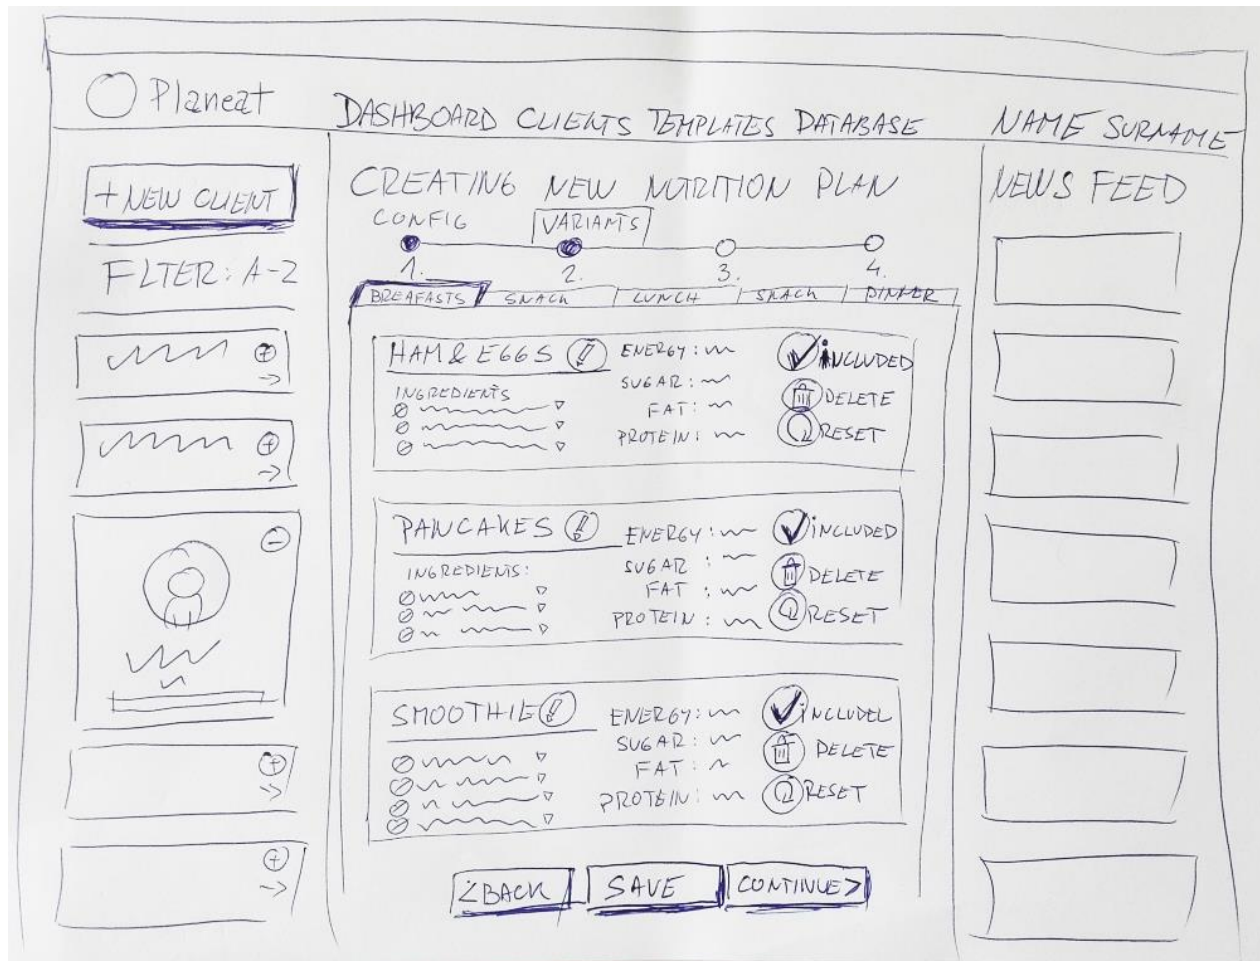 Planeat
DASHBOARD CLIENTS TEMPLATES DATABASE
NAME SURNAME
+ NEW CLIENT
FLTER: A-Z
CREATING NEW NUTRITION PLAN
CONFIG
VARIANTS
1.
2.
3.
4.
BREAFASTS
SNACK
LUNCH
SNACK
DINNER
HAM & EGGS
INGREDIENTS
ENERGY:
SUGAR:
FAT:
PROTEIN:
INCLUDED
DELETE
RESET
PANCAKES
INGREDIENTS:
ENERGY:
SUGAR :
FAT :
PROTEIN :
INCLUDED
DELETE
RESET
SMOOTHIE
ENERGY:
SUGAR:
FAT:
PROTEIN:
INCLUDED
DELETE
RESET
< BACK
SAVE
CONTINUE >
NEWS FEED